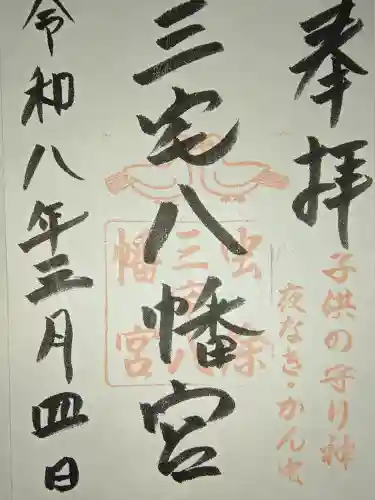 奉拝
子供の守り神
夜なき・かん虫
三宅八幡宮
虫除
三宅八
幡宮
令和八年三月四日